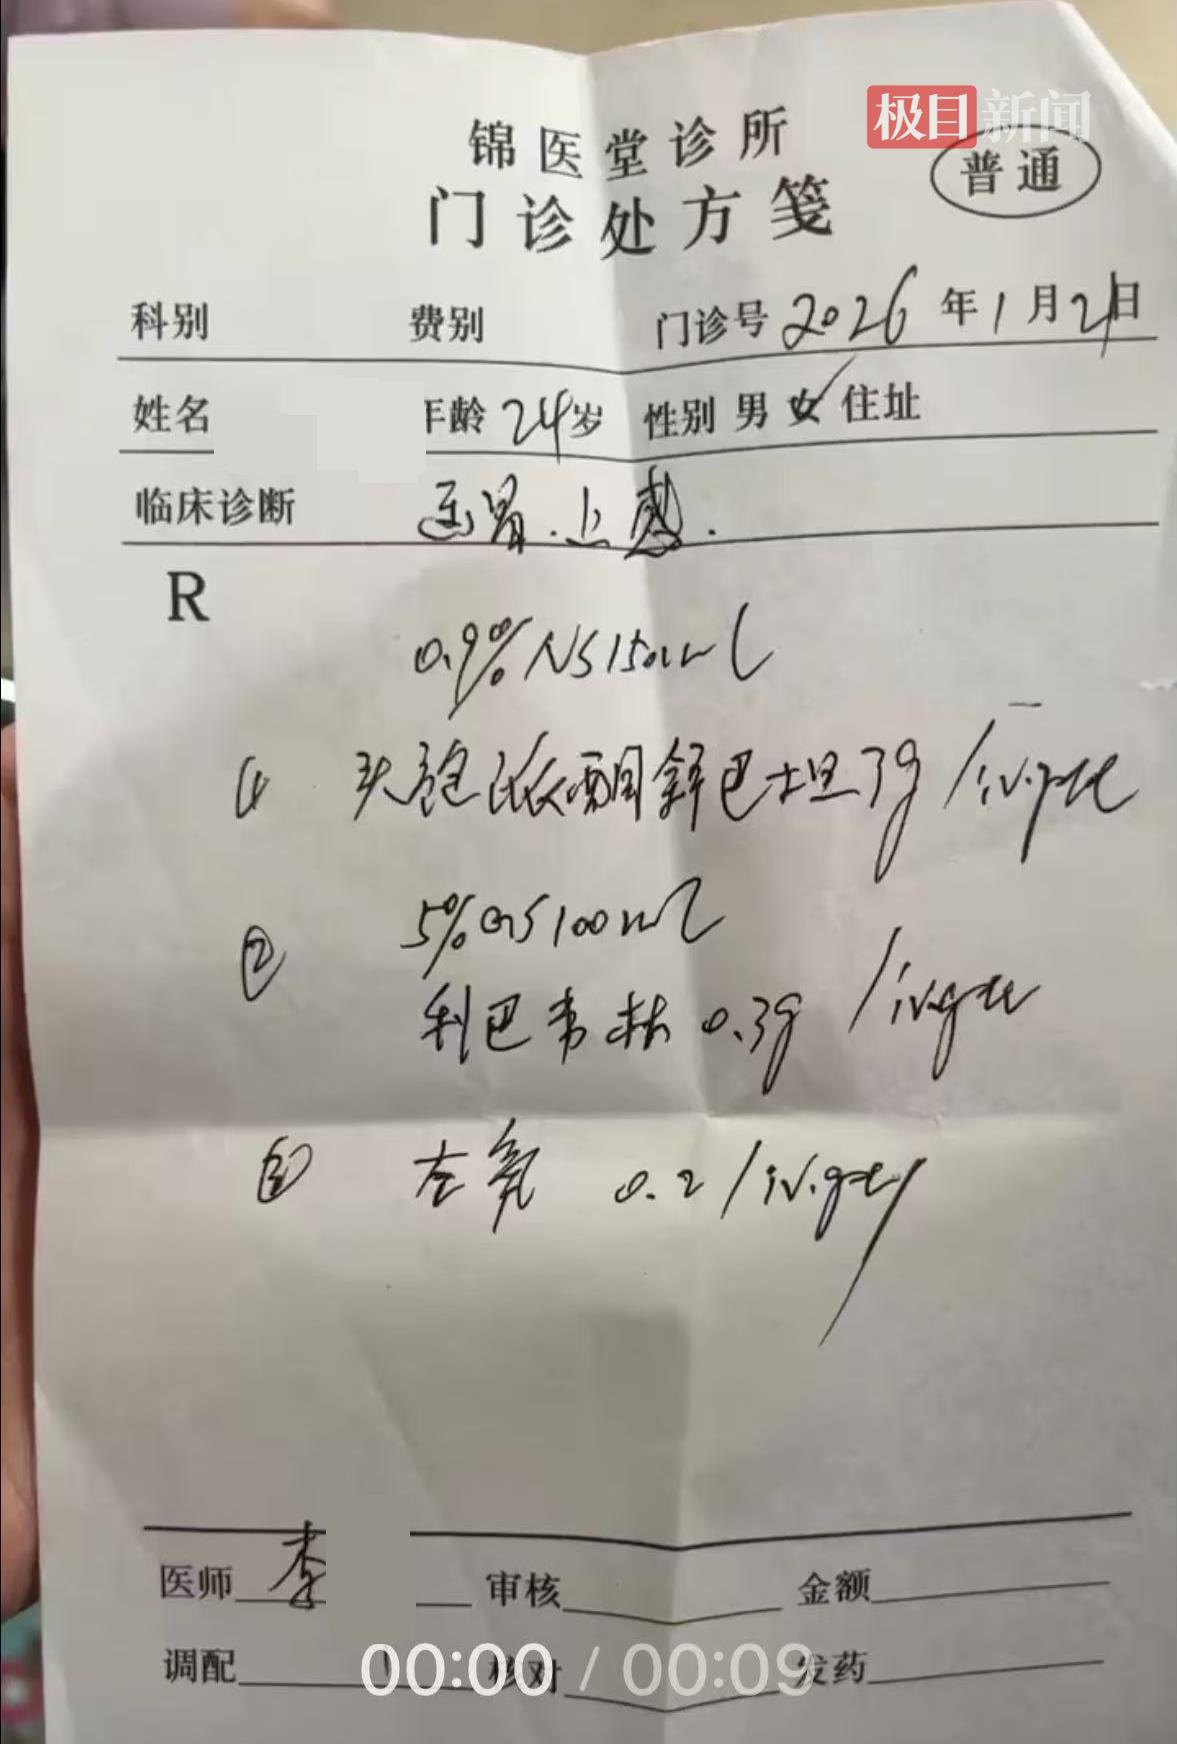 极目新闻
锦医堂诊所
普通
门诊处方笺
科别 费别 门诊号 2026年1月21日
姓名 年龄 24岁 性别 男 女 住址
临床诊断 胃.上感.
R
0.9% NS 150ml
① 头孢哌酮舒巴坦 3g / iv.gtt
5% GS 100ml
② 利巴韦林 0.3g / iv.gtt
③ 左氧 0.2 / iv.gtt
医师 李 审核 金额
调配 核对 发药
00:00 / 00:09